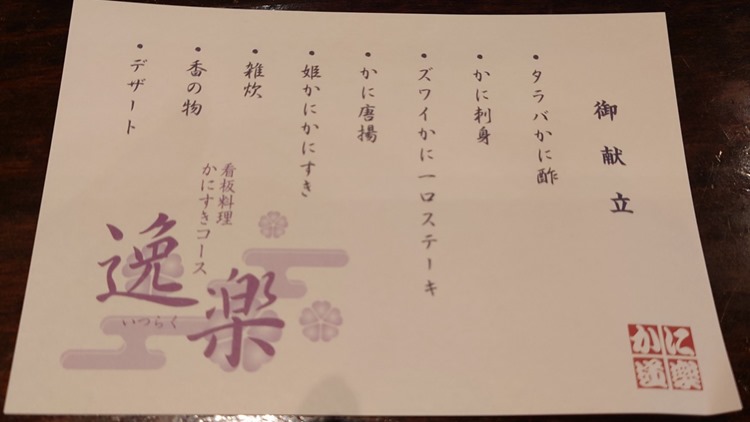 御献立
・タラバかに酢
・かに刺身
・ズワイかに一口ステーキ
・かに唐揚
・姫かにかにすき
・雑炊
・香の物
・デザート
看板料理
かにすきコース
逸楽
いつらく
かに
道楽